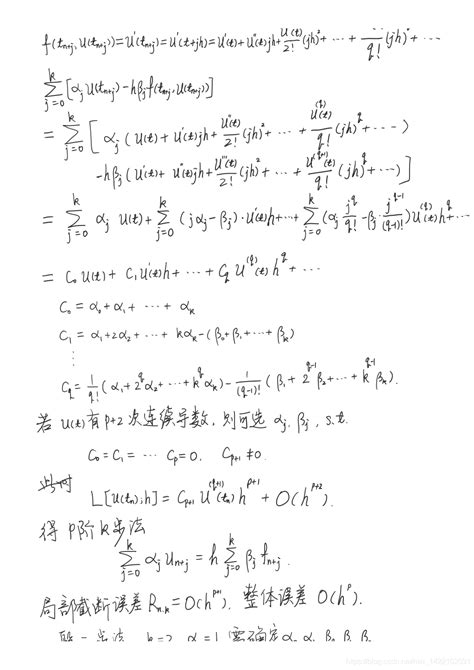 f(t_{n+j}, u(t_{n+j})) = u'(t_{n+j}) = u'(t+jh) = u'(t) + u''(t)jh + \frac{u'''(t)}{2!}(jh)^2 + ⋯ + \frac{}{q!}(jh)^q + ⋯
\sum_{j=0}^{k} [α_j u(t_{n+j}) - hβ_j f(t_{n+j}, u(t_{n+j}))]
= \sum_{j=0}^{k} [ α_j (u(t) + u'(t)jh + \frac{u''(t)}{2!}(jh)^2 + ⋯ + \frac{u^{(q)}(t)}{q!}(jh)^q + ⋯)
- hβ_j (u'(t) + u''(t)jh + \frac{u'''(t)}{2!}(jh)^2 + ⋯ + \frac{u^{(q+1)}(t)}{q!}(jh)^q + ⋯) ]
= \sum_{j=0}^{k} α_j u(t) + \sum_{j=0}^{k} (jα_j - β_j)·u'(t)h + ⋯ + \sum_{j=0}^{k} (α_j \frac{j^q}{q!} - β_j \frac{j^{q-1}}{(q-1)!}) u^{(q)}(t) h^q + ⋯
= C_0 u(t) + C_1 u'(t)h + ⋯ + C_q u^{(q)}(t) h^q + ⋯
C_0 = α_0 + α_1 + ⋯ + α_k
C_1 = α_1 + 2α_2 + ⋯ + kα_k - (β_0 + β_1 + ⋯ + β_k)
⋮
C_q = \frac{1}{q!}(α_1 + 2^q α_2 + ⋯ + k^q α_k) - \frac{1}{(q-1)!}(β_1 + 2^{q-1} β_2 + ⋯ + k^{q-1} β_k).
若 u(t) 有 p+2 次连续导数, 则可选 α_j, β_j, s.t.
C_0 = C_1 = ⋯ C_p = 0, C_{p+1} ≠ 0.
此时 L[u(t_n);h] = C_{p+1} u^{(p+1)}(t_n) h^{p+1} + O(h^{p+2}).
得 p阶k步法
\sum_{j=0}^{k} α_j u_{n+j} = h \sum_{j=0}^{k} β_j f_{n+j}.
局部截断误差 R_{n,k} = O(h^{p+1}). 整体误差 O(h^p).